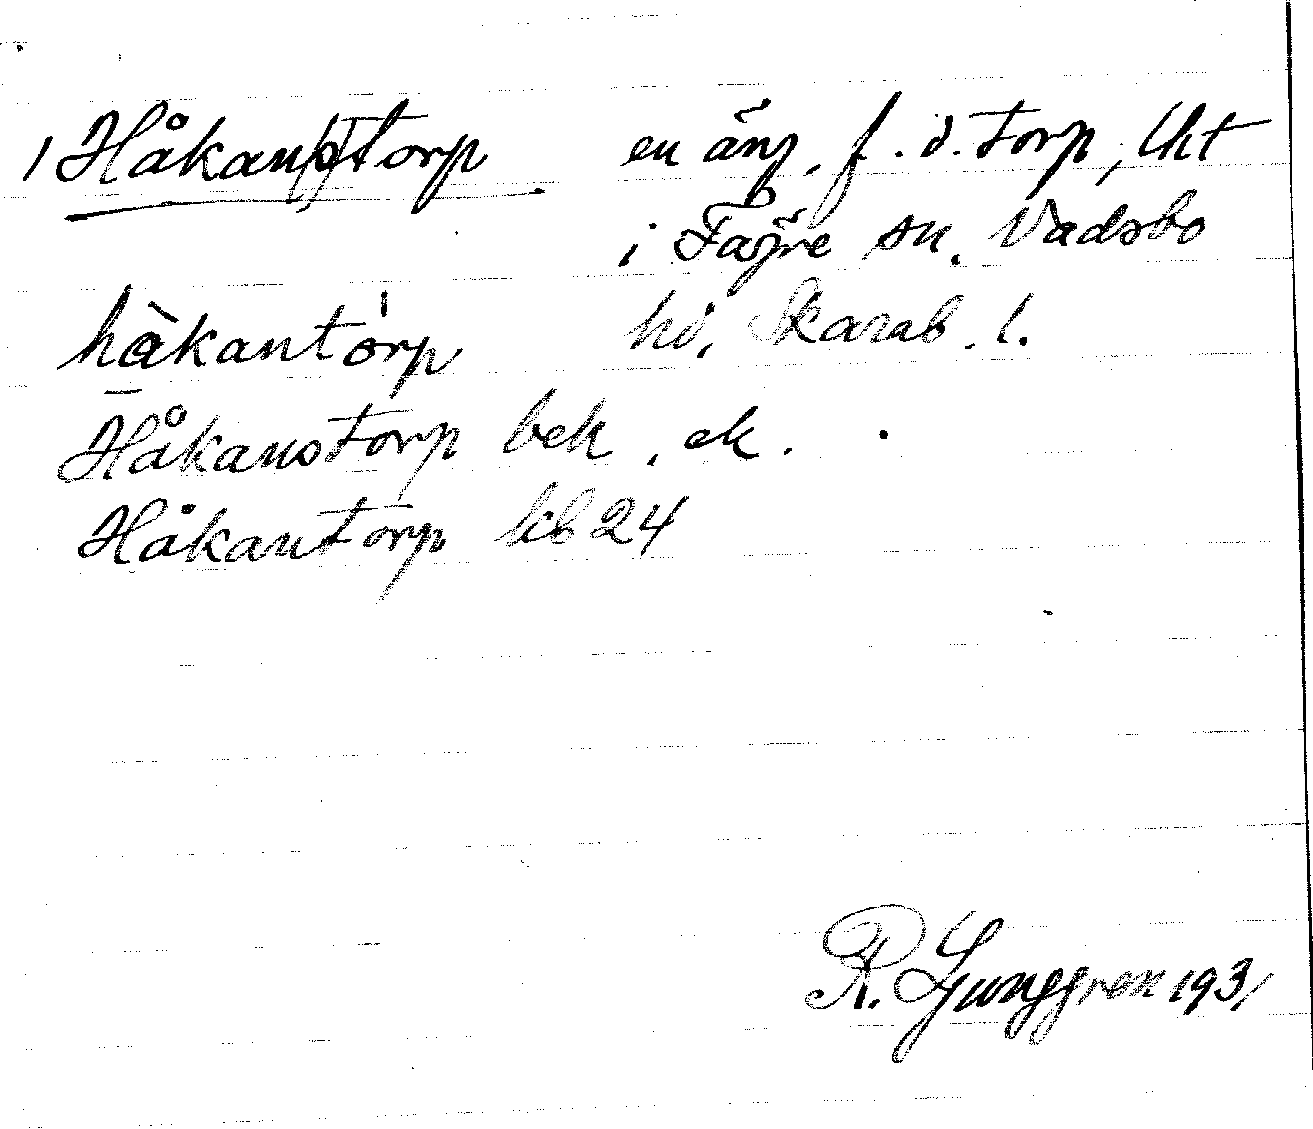 1 Håkan(s)torp en äng, f. d. torp, lht
i Fägre sn. Vadsbo
hd, Skarab. l.
hàkantórp
Håkanstorp bek, ek.
Håkantorp kb 24
R. Ljunggren 1931